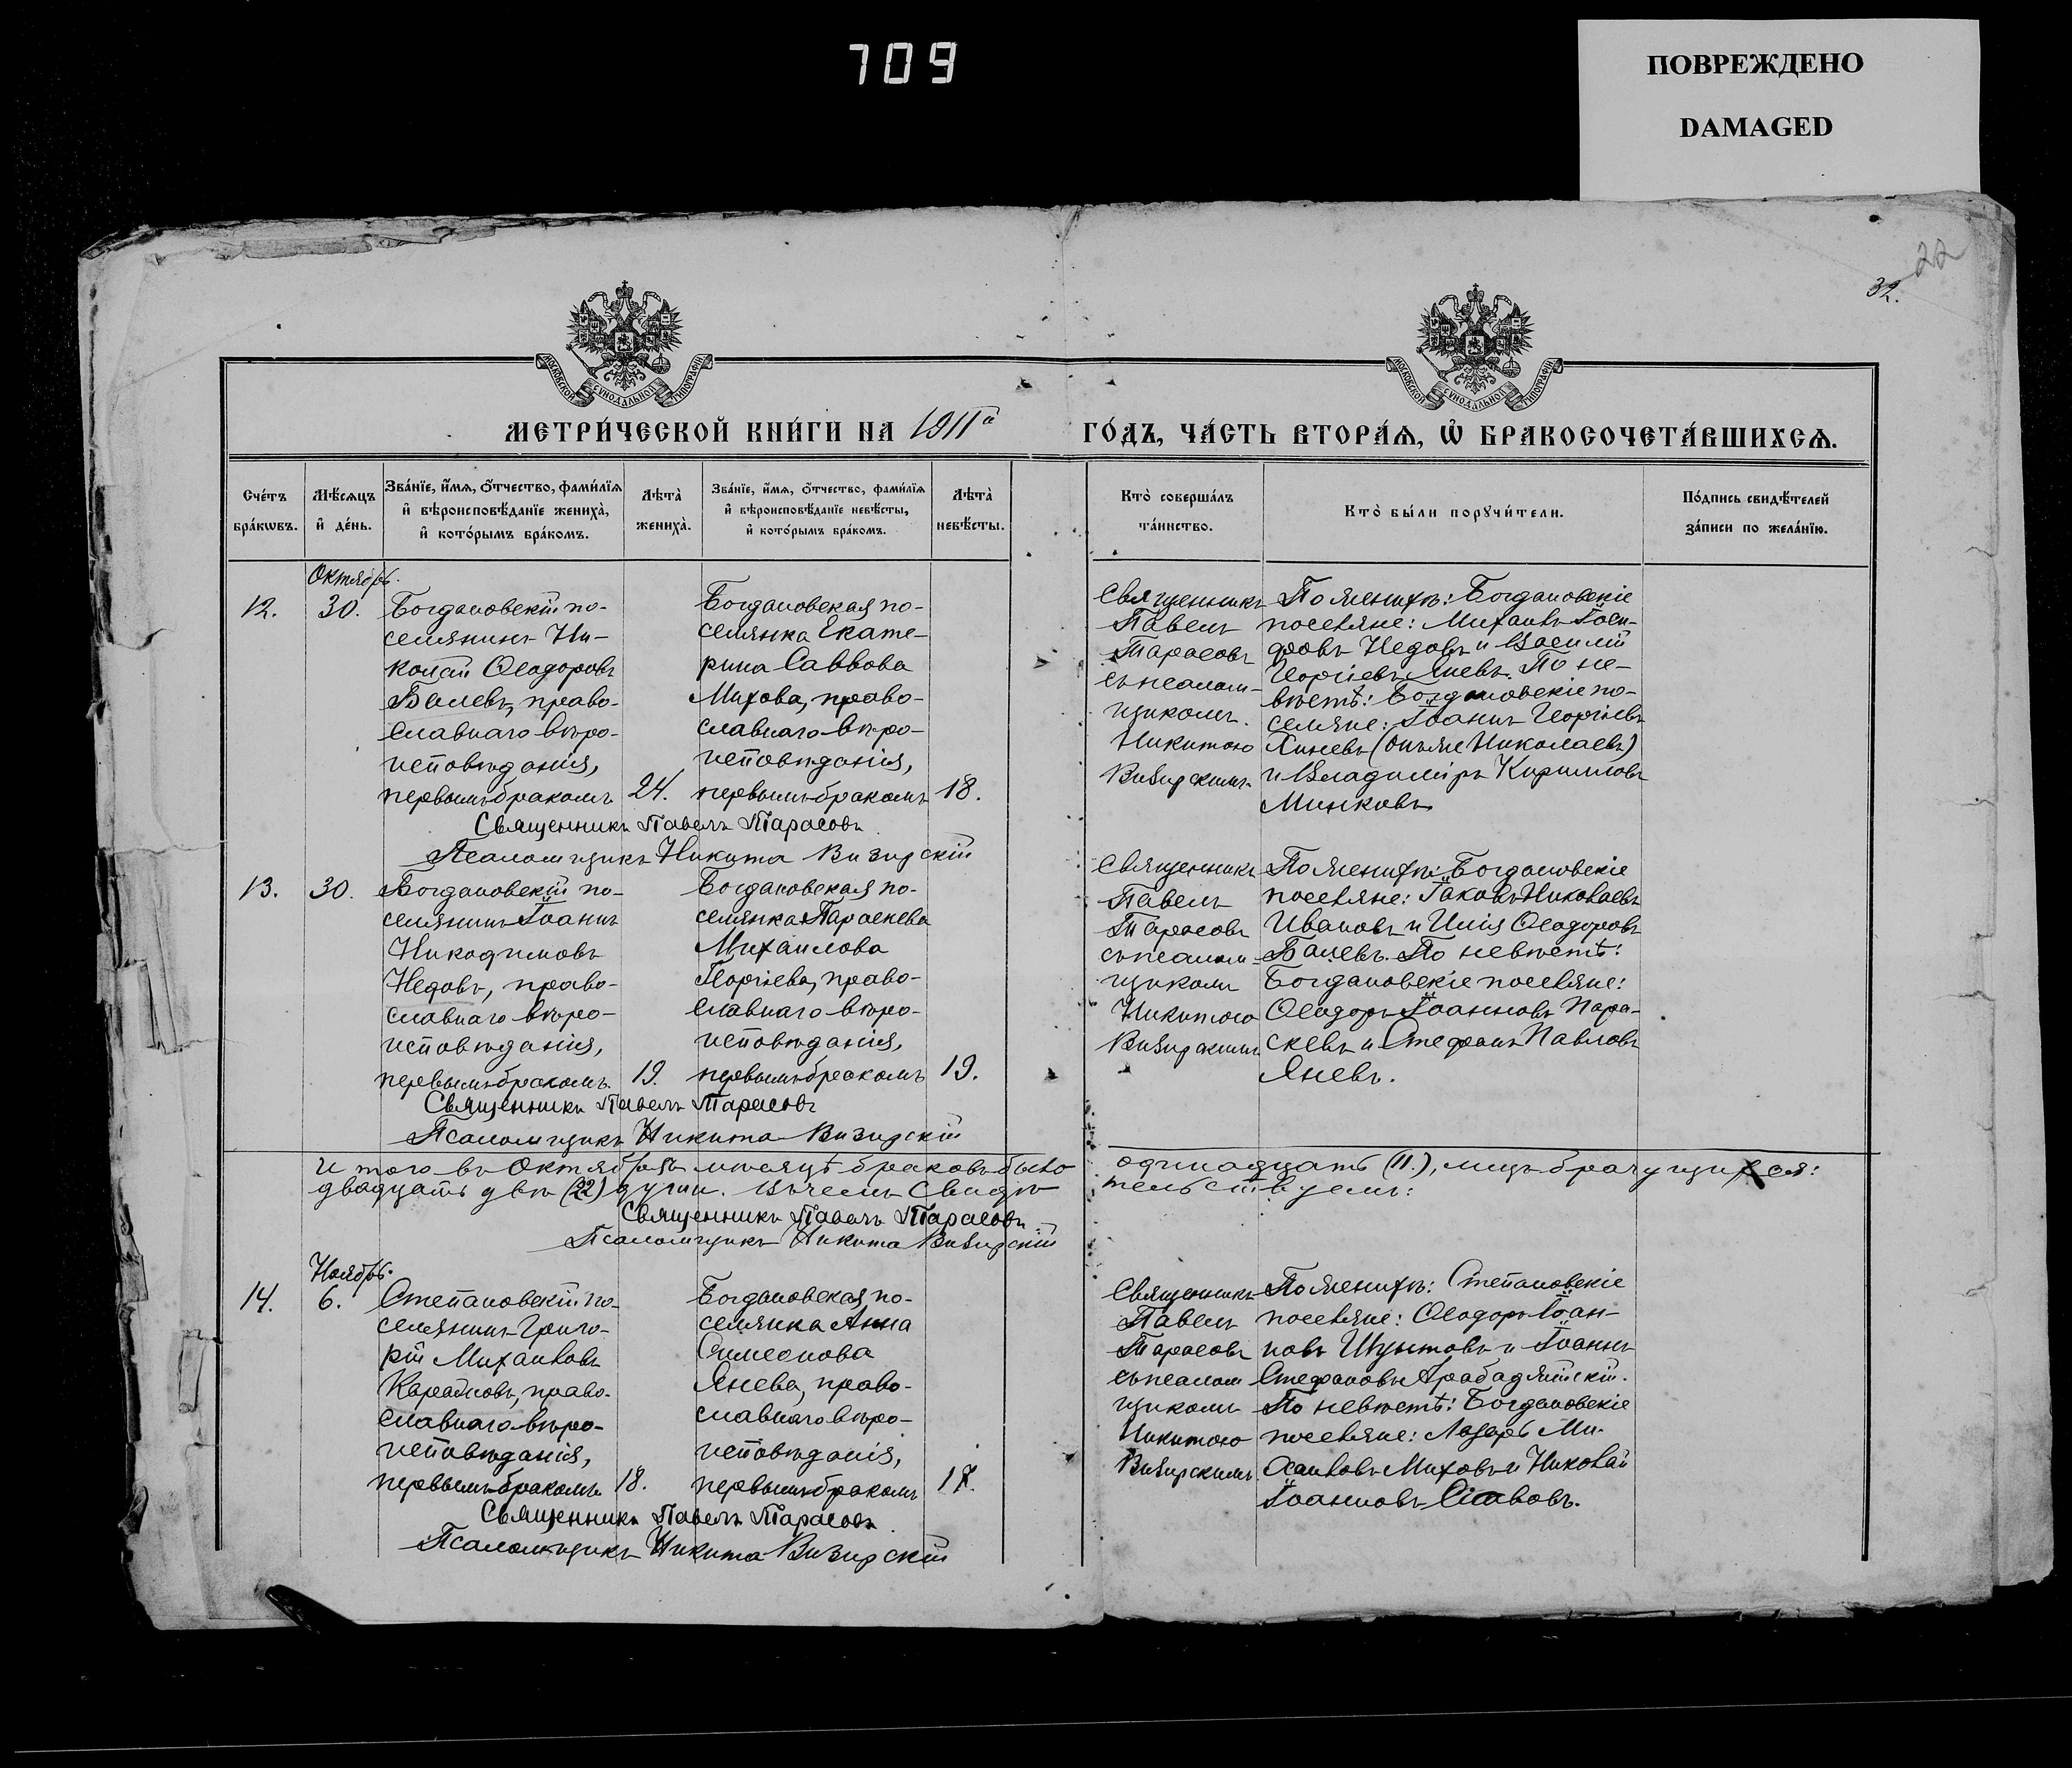 709
ПОВРЕЖДЕНО
DAMAGED
22
32.
МОСКОВСКОЙ СѴНОДАЛЬНОЙ ТИПОГРАФІИ
МОСКОВСКОЙ СѴНОДАЛЬНОЙ ТИПОГРАФІИ
МЕТРИ́ЧЕСКОЙ КНИ́ГИ НА 1911й
ГО́ДЪ, ЧА́СТЬ ВТОРА́Я, Ѡ҆ БРАКОСОЧЕТА́ВШИХСѦ.
Сче́тъ
бра́кѡвъ.
Мѣ́сяцъ
и҆ де́нь.
Зва́нїе, и҆́мя, ѻ҆́тчество, фами́лїя
и҆ вѣроисповѣ́данїе жениха̀,
и҆ кото́рымъ бра́комъ.
Лѣта̀
жениха̀.
Зва́нїе, и҆́мя, ѻ҆́тчество, фами́лїя
и҆ вѣроисповѣ́данїе невѣ́сты,
и҆ кото́рымъ бра́комъ.
Лѣта̀
невѣ́сты.
Кто̀ соверша́лъ
та́инство.
Кто̀ бы́ли порꙋчи́тели.
По́дпись свидѣ́телей
за́писи по жела́нїю.
Октябрь.
12.
30.
Богдановскій по-
селянинъ Ни-
колай Ѳеодоровъ
Балевъ, право-
славнаго вѣро-
исповѣданія,
первымъ бракомъ
24.
Богдановская по-
селянка Екате-
рина Саввова
Михова, право-
славнаго вѣро-
исповѣданія,
первымъ бракомъ
18.
Священникъ
Павелъ
Тарасовъ
съ псалом-
щикомъ
Никитою
Визирскимъ
По женихѣ: Богдановскіе
поселяне: Михаилъ Іоси-
фовъ Недовъ и Василій
Георгіевъ Яневъ. По не-
вѣстѣ: Богдановскіе по-
селяне: Іоаннъ Георгіевъ
Хиневъ (онъ же Николаевъ)
и Владиміръ Кирилловъ
Минковъ
Священникъ Павелъ Тарасовъ
Псаломщикъ Никита Визирскій
13.
30.
Богдановскій по-
селянинъ Іоаннъ
Никодимовъ
Недовъ, право-
славнаго вѣро-
исповѣданія,
первымъ бракомъ.
19.
Богдановская по-
селянка Параскева
Михаилова
Георгіева, право-
славнаго вѣро-
исповѣданія,
первымъ бракомъ
19.
Священникъ
Павелъ
Тарасовъ
съ псалом-
щикомъ
Никитою
Визирскимъ
По женихѣ: Богдановскіе
поселяне: Іаковъ Николаевъ
Ивановъ и Илія Ѳеодоровъ
Балевъ. По невѣстѣ:
Богдановскіе поселяне:
Ѳеодоръ Іоанновъ Пара-
скевъ и Стефанъ Павловъ
Яневъ.
Священникъ Павелъ Тарасовъ
Псаломщикъ Никита Визирскій
Итого въ Октябрѣ мѣсяцѣ браковъ было одинадцать (11.), лицъ брачущихся:
двадцать двѣ (22) души. Въ чемъ свидѣтельствуемъ:
Священникъ Павелъ Тарасовъ
Псаломщикъ Никита Визирскій
Ноябрь.
14.
6.
Степановскій по-
селянинъ Григо-
рій Михаиловъ
право-
славнаго вѣро-
исповѣданія,
первымъ бракомъ
18.
Богдановская по-
селянка Анна
Симеонова
Янева, право-
славнаго вѣро-
исповѣданія,
первымъ бракомъ
17.
Священникъ
Павелъ
Тарасовъ
съ псалом
щикомъ
Никитою
Визирскимъ
По женихѣ: Степановскіе
поселяне: Ѳеодоръ Іоан-
новъ и Іоаннъ
Стефановъ Арабаджійскій.
По невѣстѣ: Богдановскіе
поселяне: Лазарь Ми-
хаиловъ Миховъ и Николай
Іоанновъ Славовъ.
Священникъ Павелъ Тарасовъ
Псаломщикъ Никита Визирскій